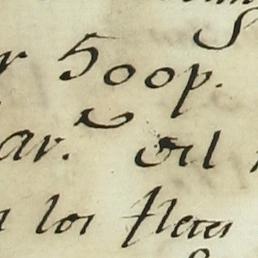 r 500p.
ar. del
los fletes